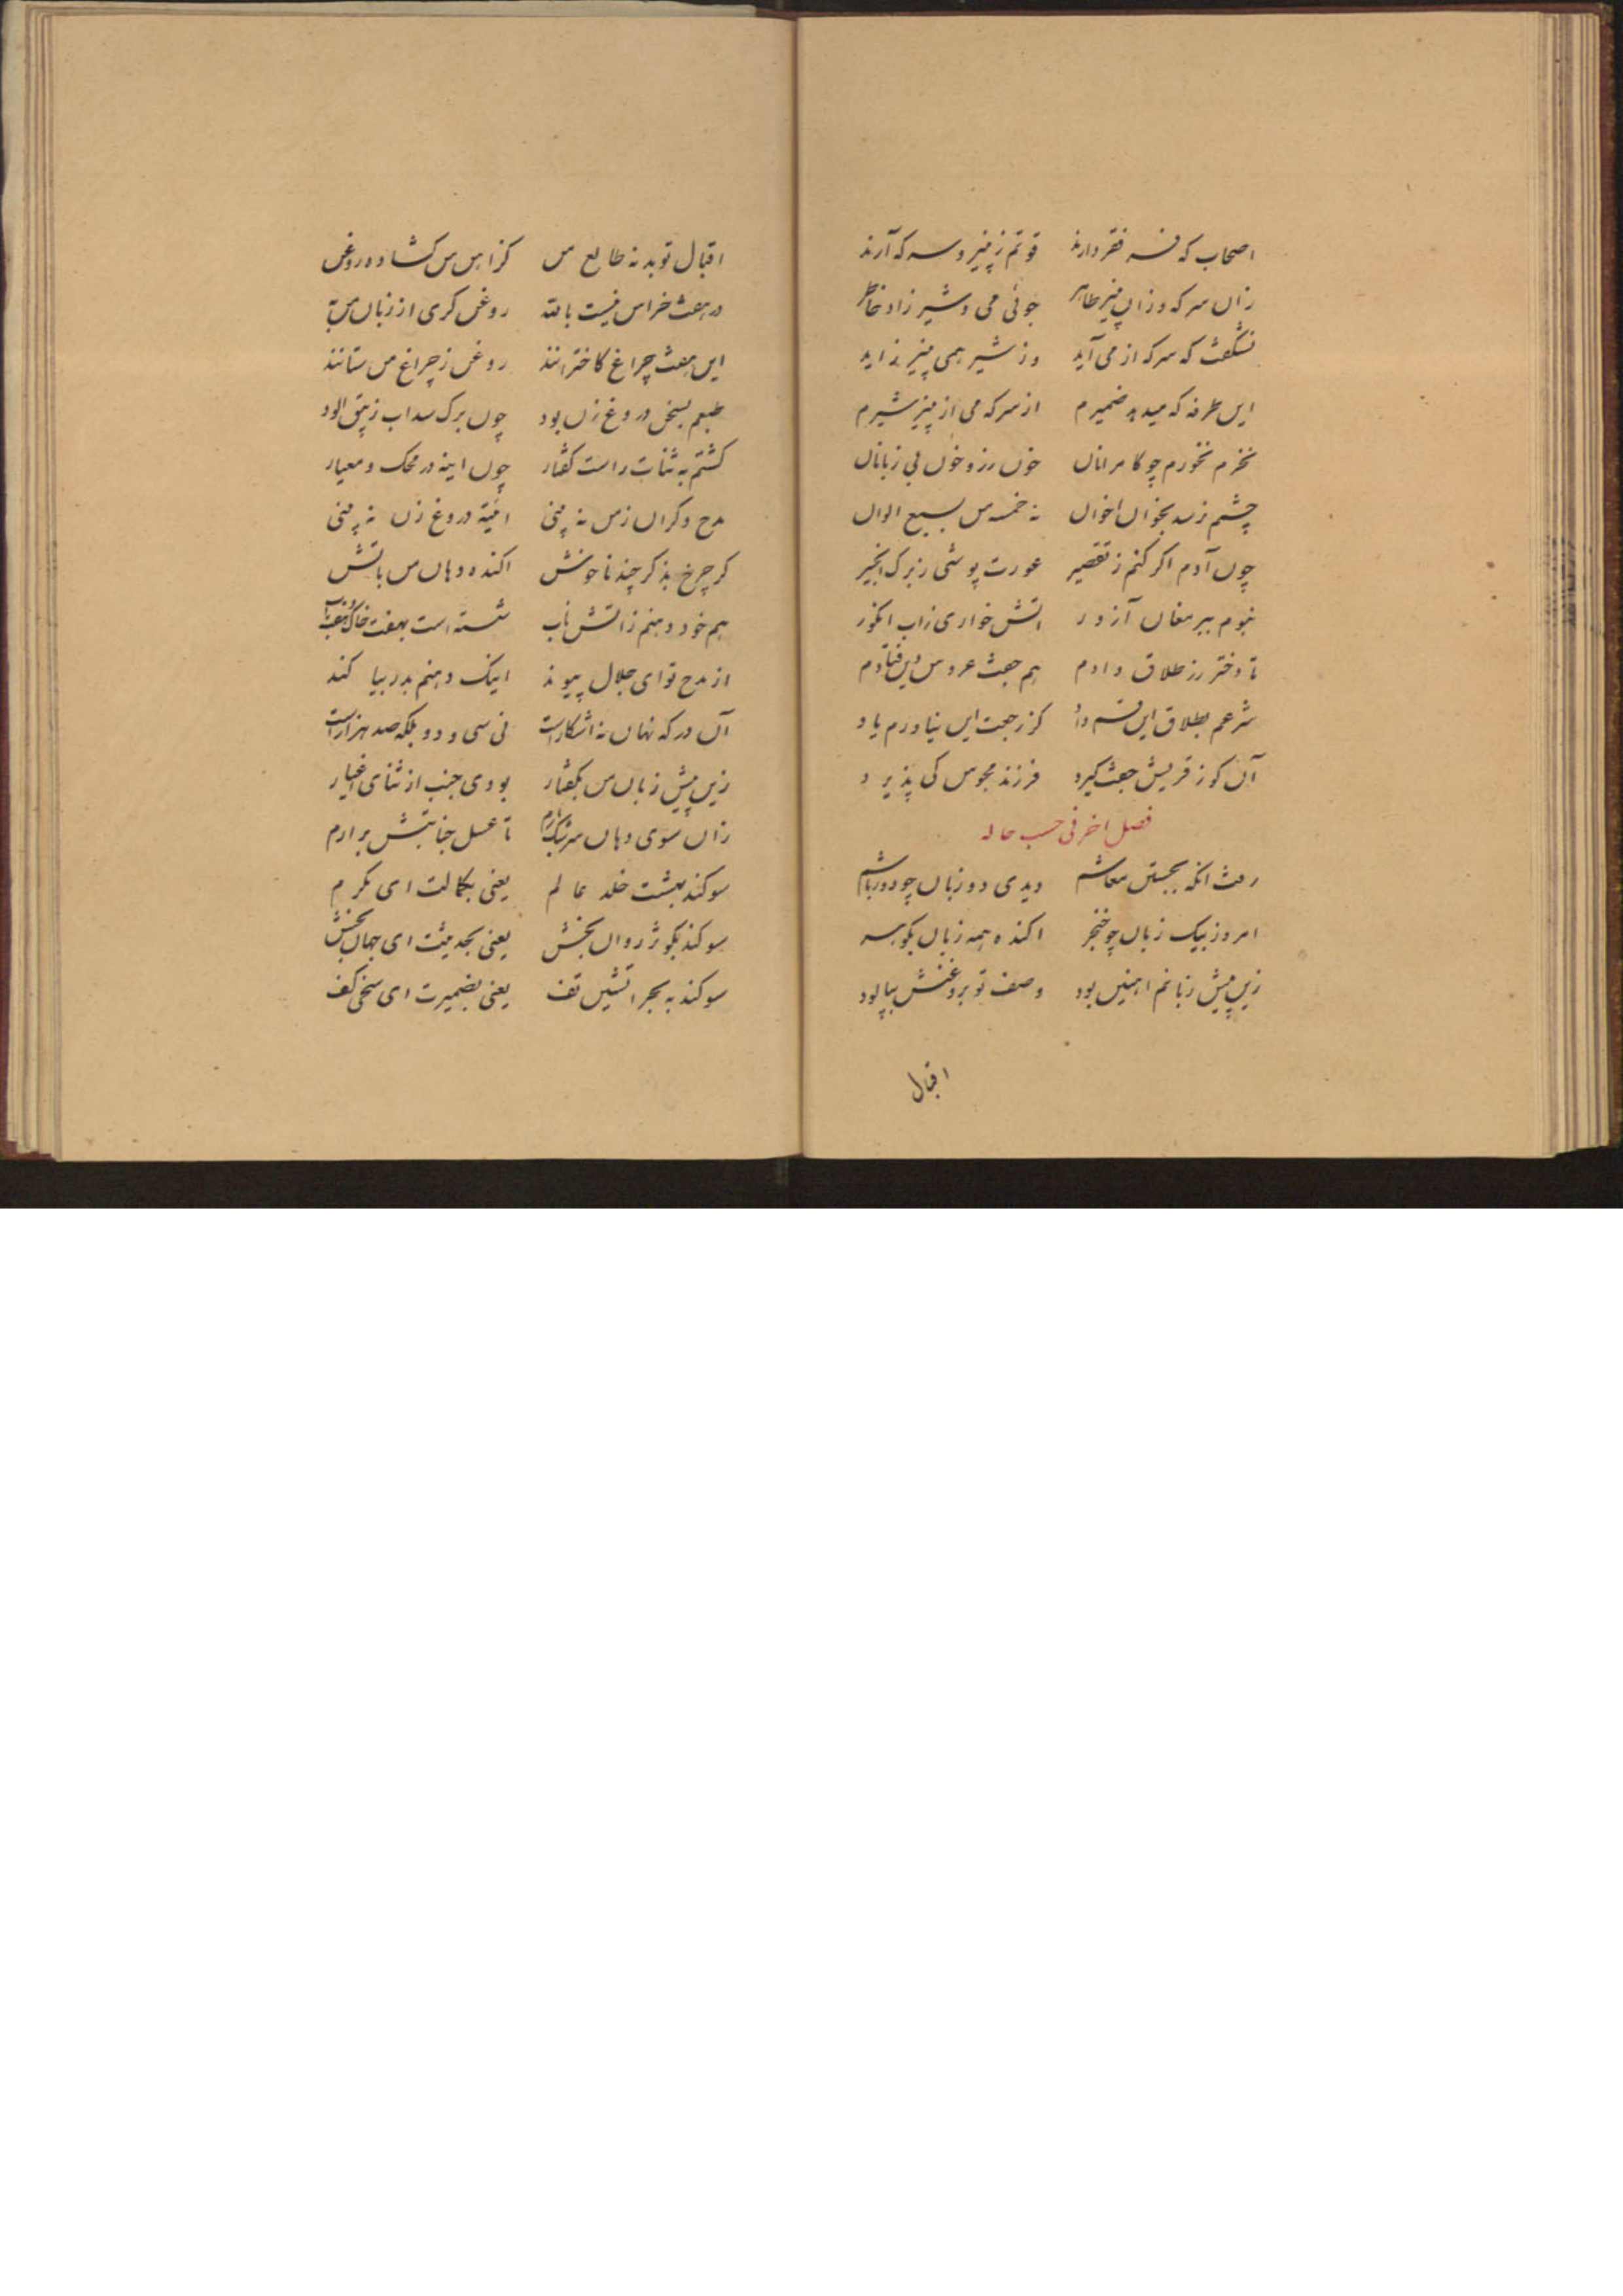 اصحاب که فسر فقر دارند قوتم ز پنیر و سرکه آرند
زان سرکه و زان پنیر طاهر جوئی می و شیر زاد خاطر
نشگفت که سرکه از می آید وز شیر همی پنیر زاید
این طرفه که میدهد ضمیرم از سرکه می از پنیر شیرم
نخرم نخورم چو کامرانان خون رز و خون بی زبانان
چشم نرسد بخوان اخوان نه خمسه من بسبع الوان
چون آدم اگر کنم ز تقصیر عورت پوشی ز برک انجیر
نبوم ببر مغان آزور اتش خواری ز اب انکور
تا دختر رز طلاق دادم هم جفت عروس دین فتادم
شرعم بطلاق این قسم داد کز رجعت این نیاورم یاد
آن کو ز قریش جفت کیرد فرزند مجوس کی پذیرد
فصل اخر فی حسب حاله
رفت انکه بجستن معاشم دیدی دو زبان چو دورباشم
امروز بیک زبان چو خنجر اکنده همه زبان بکوهر
زین پیش زبانم اهنین بود وصف تو بروغنش بپالود
اقبال
اقبال تو بد نه طالع من کز اهن من کشاده روغن
در هفت خراس نیست بالله روغن کری از زبان من به
این هفت چراغ کاخترانند روغن ز چراغ من ستانند
طبعم بسخن دروغ زن بود چون برک سداب زیبق الود
کشتم به ثنات راست کفتار چون اینه در محک و معیار
مدح دکران ز من نه بینی ائینه دروغ زن نه بینی
کر چرخ بذکر چند ناخوش اکنده دهان من باتش
هم خود دهنم ز اتش ناب شسته است بهفت خاک و هفت اب
از مدح تو ای جلال پیوند اینک دهنم بدر بیا کند
آن در که نهان نه اشکاراست نی سی و دو بلکه صد هزاراست
زین پیش زبان من بکفتار بودی جنب از ثنای اغیار
زان سوی دهان سرشک بارم تا غسل جنابتش برارم
سوکند ببهشت خلد عالم یعنی بکمالت ای مکرم
سوکند بکوثر روان بخش یعنی بحدیثت ای جهان بخش
سوکند به بحر اتشین تف یعنی بضمیرت ای سخی کف